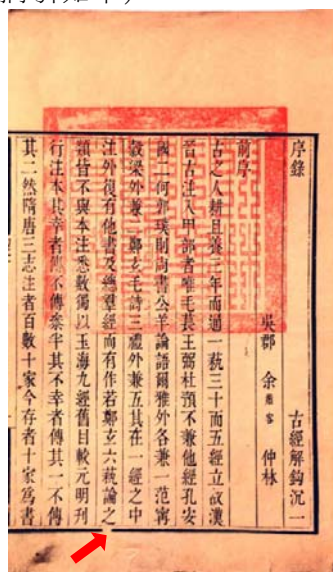 序錄 古經解鈎沉一
吳郡 余蕭客 仲林
前序
古之人耕且養三年而通一蓺三十而五經立故漢
晉古注入甲部者唯毛萇王弼杜預不兼他經孔安
國二何郭璞則尚書公羊論語爾雅外各兼一范甯
穀梁外兼二鄭玄毛詩三禮外兼五其在一經之中
注外復有他書及總羣經而有作若鄭玄六蓺論之
類皆不與本注悉數獨以玉海九經舊目較元明刊
行注本其幸者傳不傳參半其不幸者傳其一不傳
其二然隋唐三志注者百數十家今存者十家為書